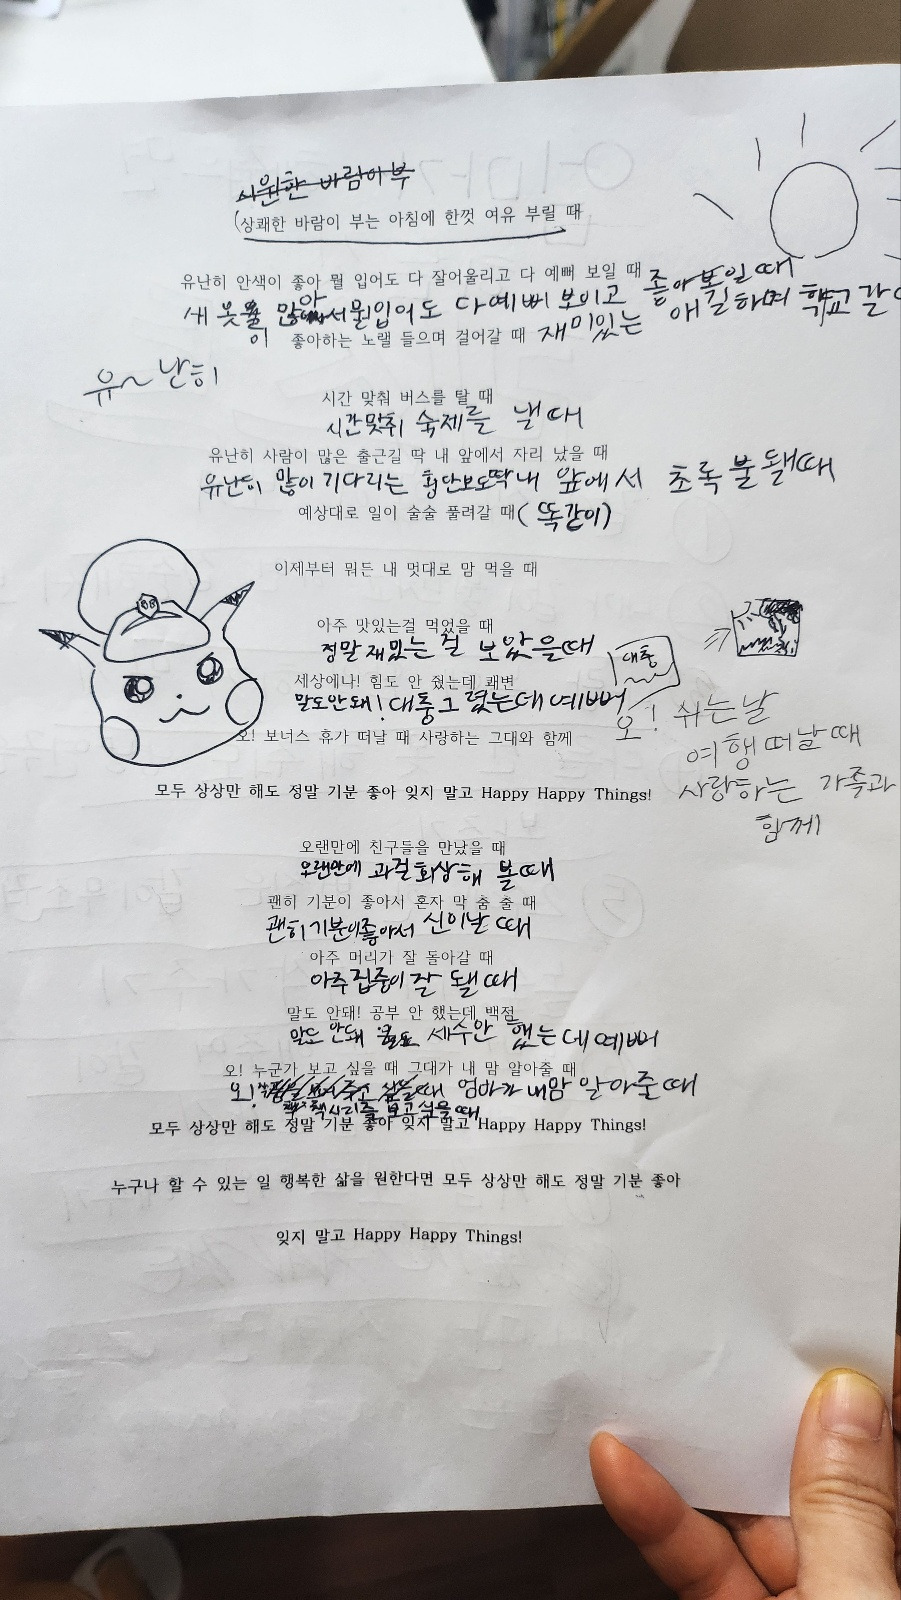 시원한 바람이 부
(상쾌한 바람이 부는 아침에 한껏 여유 부릴 때
유난히 안색이 좋아 뭘 입어도 다 잘어울리고 다 예뻐 보일 때 좋아보일 때
새 옷이 많아서 뭘입어도 다 예뻐 보이고
좋아하는 노랠 들으며 걸어갈 때 재미있는 얘길하며 학교 갈
유~난히
시간 맞춰 버스를 탈 때
시간맞춰 숙제를 낼 때
유난히 사람이 많은 출근길 딱 내 앞에서 자리 났을 때
유난히 많이 기다리는 횡단보도딱 내 앞에서 초록 불 됄때
예상대로 일이 술술 풀려갈 때 (똑같이)
이제부터 뭐든 내 멋대로 맘 먹을 때
아주 맛있는걸 먹었을 때
정말 재밌는 걸 보았을때
대충
세상에나! 힘도 안 줬는데 쾌변
말도안돼! 대충그렸는데 예뻐
오! 보너스 휴가 떠날 때 사랑하는 그대와 함께
오! 쉬는날
여행 떠날때
사랑하는 가족과
함께
모두 상상만 해도 정말 기분 좋아 잊지 말고 Happy Happy Things!
오랜만에 친구들을 만났을 때
오랜만에 과걸 회상해 볼때
괜히 기분이 좋아서 혼자 막 춤 출 때
괜히기분이좋아서 신이날 때
아주 머리가 잘 돌아갈 때
아주집중이 잘 됄 때
말도 안돼! 공부 안 했는데 백점
말도 안돼 세수안 했는데 예뻐
오! 누군가 보고 싶을 때 그대가 내 맘 알아줄 때
오! 엄마가 내맘 알아줄때
책시리즐 보고싶을때
모두 상상만 해도 정말 기분 좋아 잊지 말고 Happy Happy Things!
누구나 할 수 있는 일 행복한 삶을 원한다면 모두 상상만 해도 정말 기분 좋아
잊지 말고 Happy Happy Things!